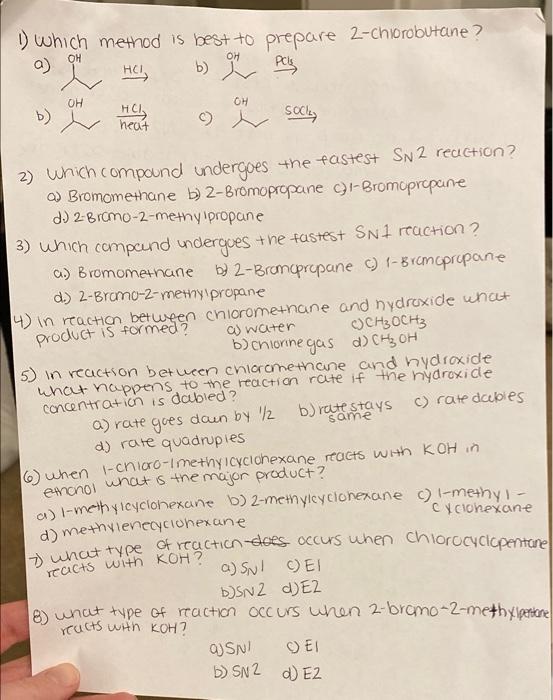 1) Which method is best to prepare 2-chlorobutane?
a) OH HCl b) OH PCl5
b) OH HCl heat c) OH SOCl2
2) Which compound undergoes the fastest SN2 reaction?
a) Bromomethane b) 2-Bromopropane c) 1-Bromopropane
d) 2-Bromo-2-methylpropane
3) Which compound undergoes the fastest SN1 reaction?
a) Bromomethane b) 2-Bromopropane c) 1-Bromopropane
d) 2-Bromo-2-methylpropane
4) in reaction between chloromethane and hydroxide what
product is formed? a) water c) CH3OCH3
b) chlorine gas d) CH3OH
5) in reaction between chloromethane and hydroxide
what happens to the reaction rate if the hydroxide
concentration is dobled?
a) rate goes down by 1/2 b) rate stays same c) rate doubles
d) rate quadruples
6) when 1-chloro-1methylcyclohexane reacts with KOH in
ethonol what is the major product?
a) 1-methylcyclohexane b) 2-methylcyclohexane c) 1-methyl-
cyclohexane
d) methylenecyclohexane
7) what type of reaction does occurs when chlorocyclopentane
reacts with KOH? a) SN1 c) E1
b) SN2 d) E2
8) what type of reaction occurs when 2-bromo-2-methylpentane
reacts with KOH?
a) SN1 c) E1
b) SN2 d) E2